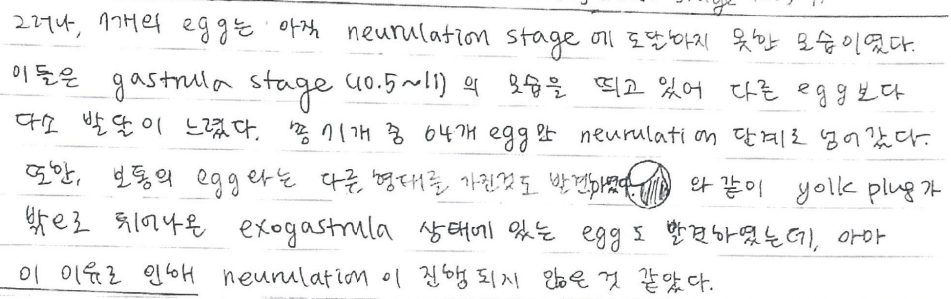 그러나, 7개의 egg는 아직 neurulation stage에 도달하지 못한 모습이였다.
이들은 gastrula stage (10.5~11)의 모습을 띄고 있어 다른 egg보다
다소 발달이 느렸다. 총 71개 중 64개 egg만 neurulation 단계로 넘어갔다.
또한, 보통의 egg와는 다른 형태를 가진것도 발견하였다. 와 같이 yolk plug가
밖으로 튀어나온 exogastrula 상태에 있는 egg도 발견하였는데, 아마
이 이유로 인해 neurulation이 진행되지 않은 것 같았다.